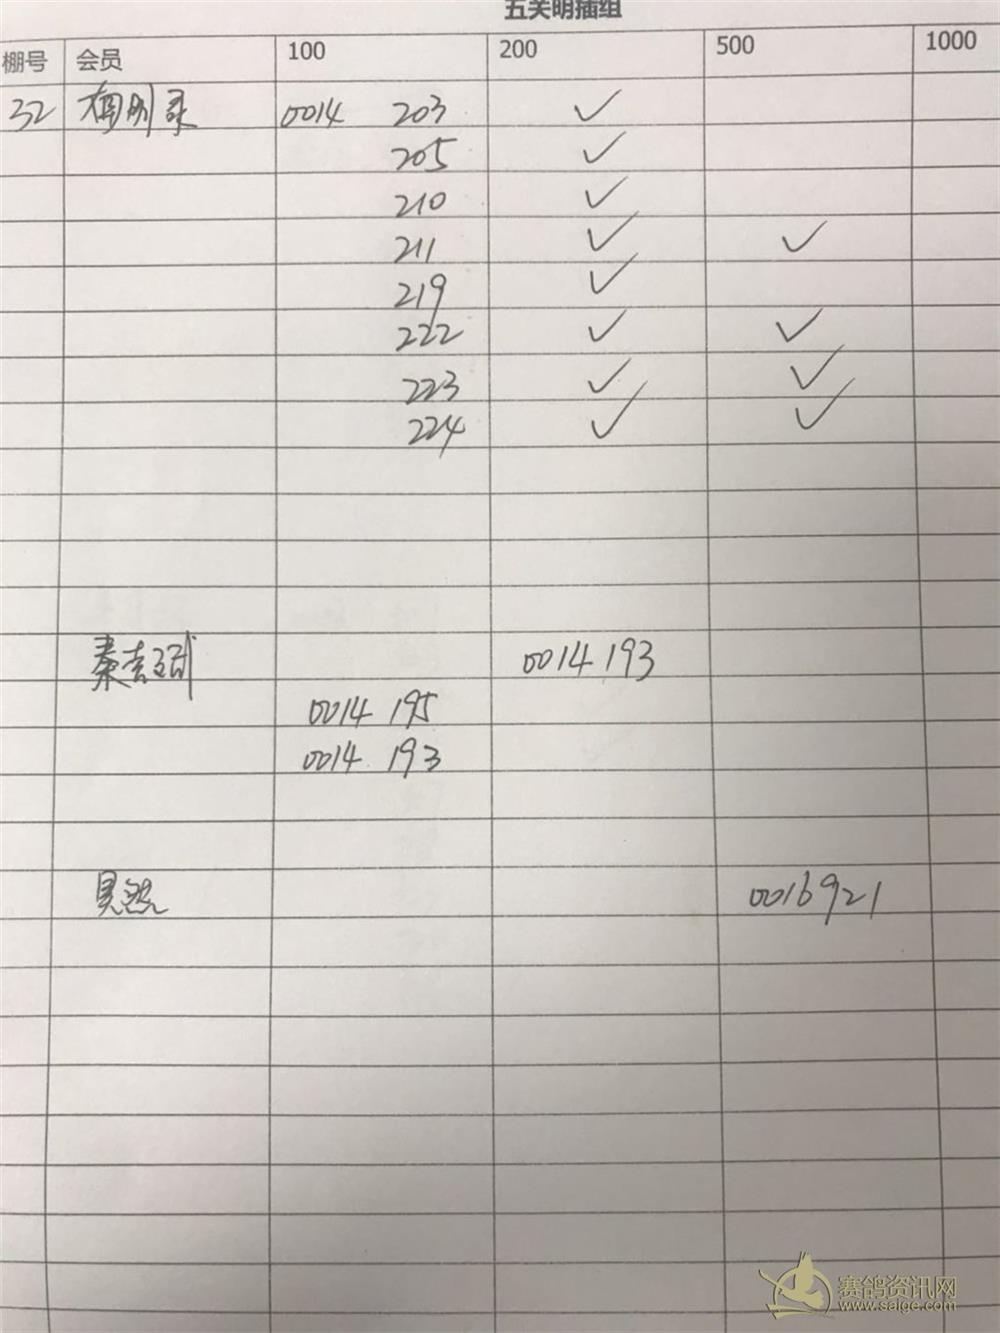 五关明插组
棚号 会员 100 200 500 1000
32 0014 203 ✓
205 ✓
210 ✓
211 ✓ ✓
219 ✓
222 ✓ ✓
223 ✓ ✓
224 ✓ ✓
秦吉 0014193
0014 195
0014 193
0016921
赛鸽资讯网
www.saige.com